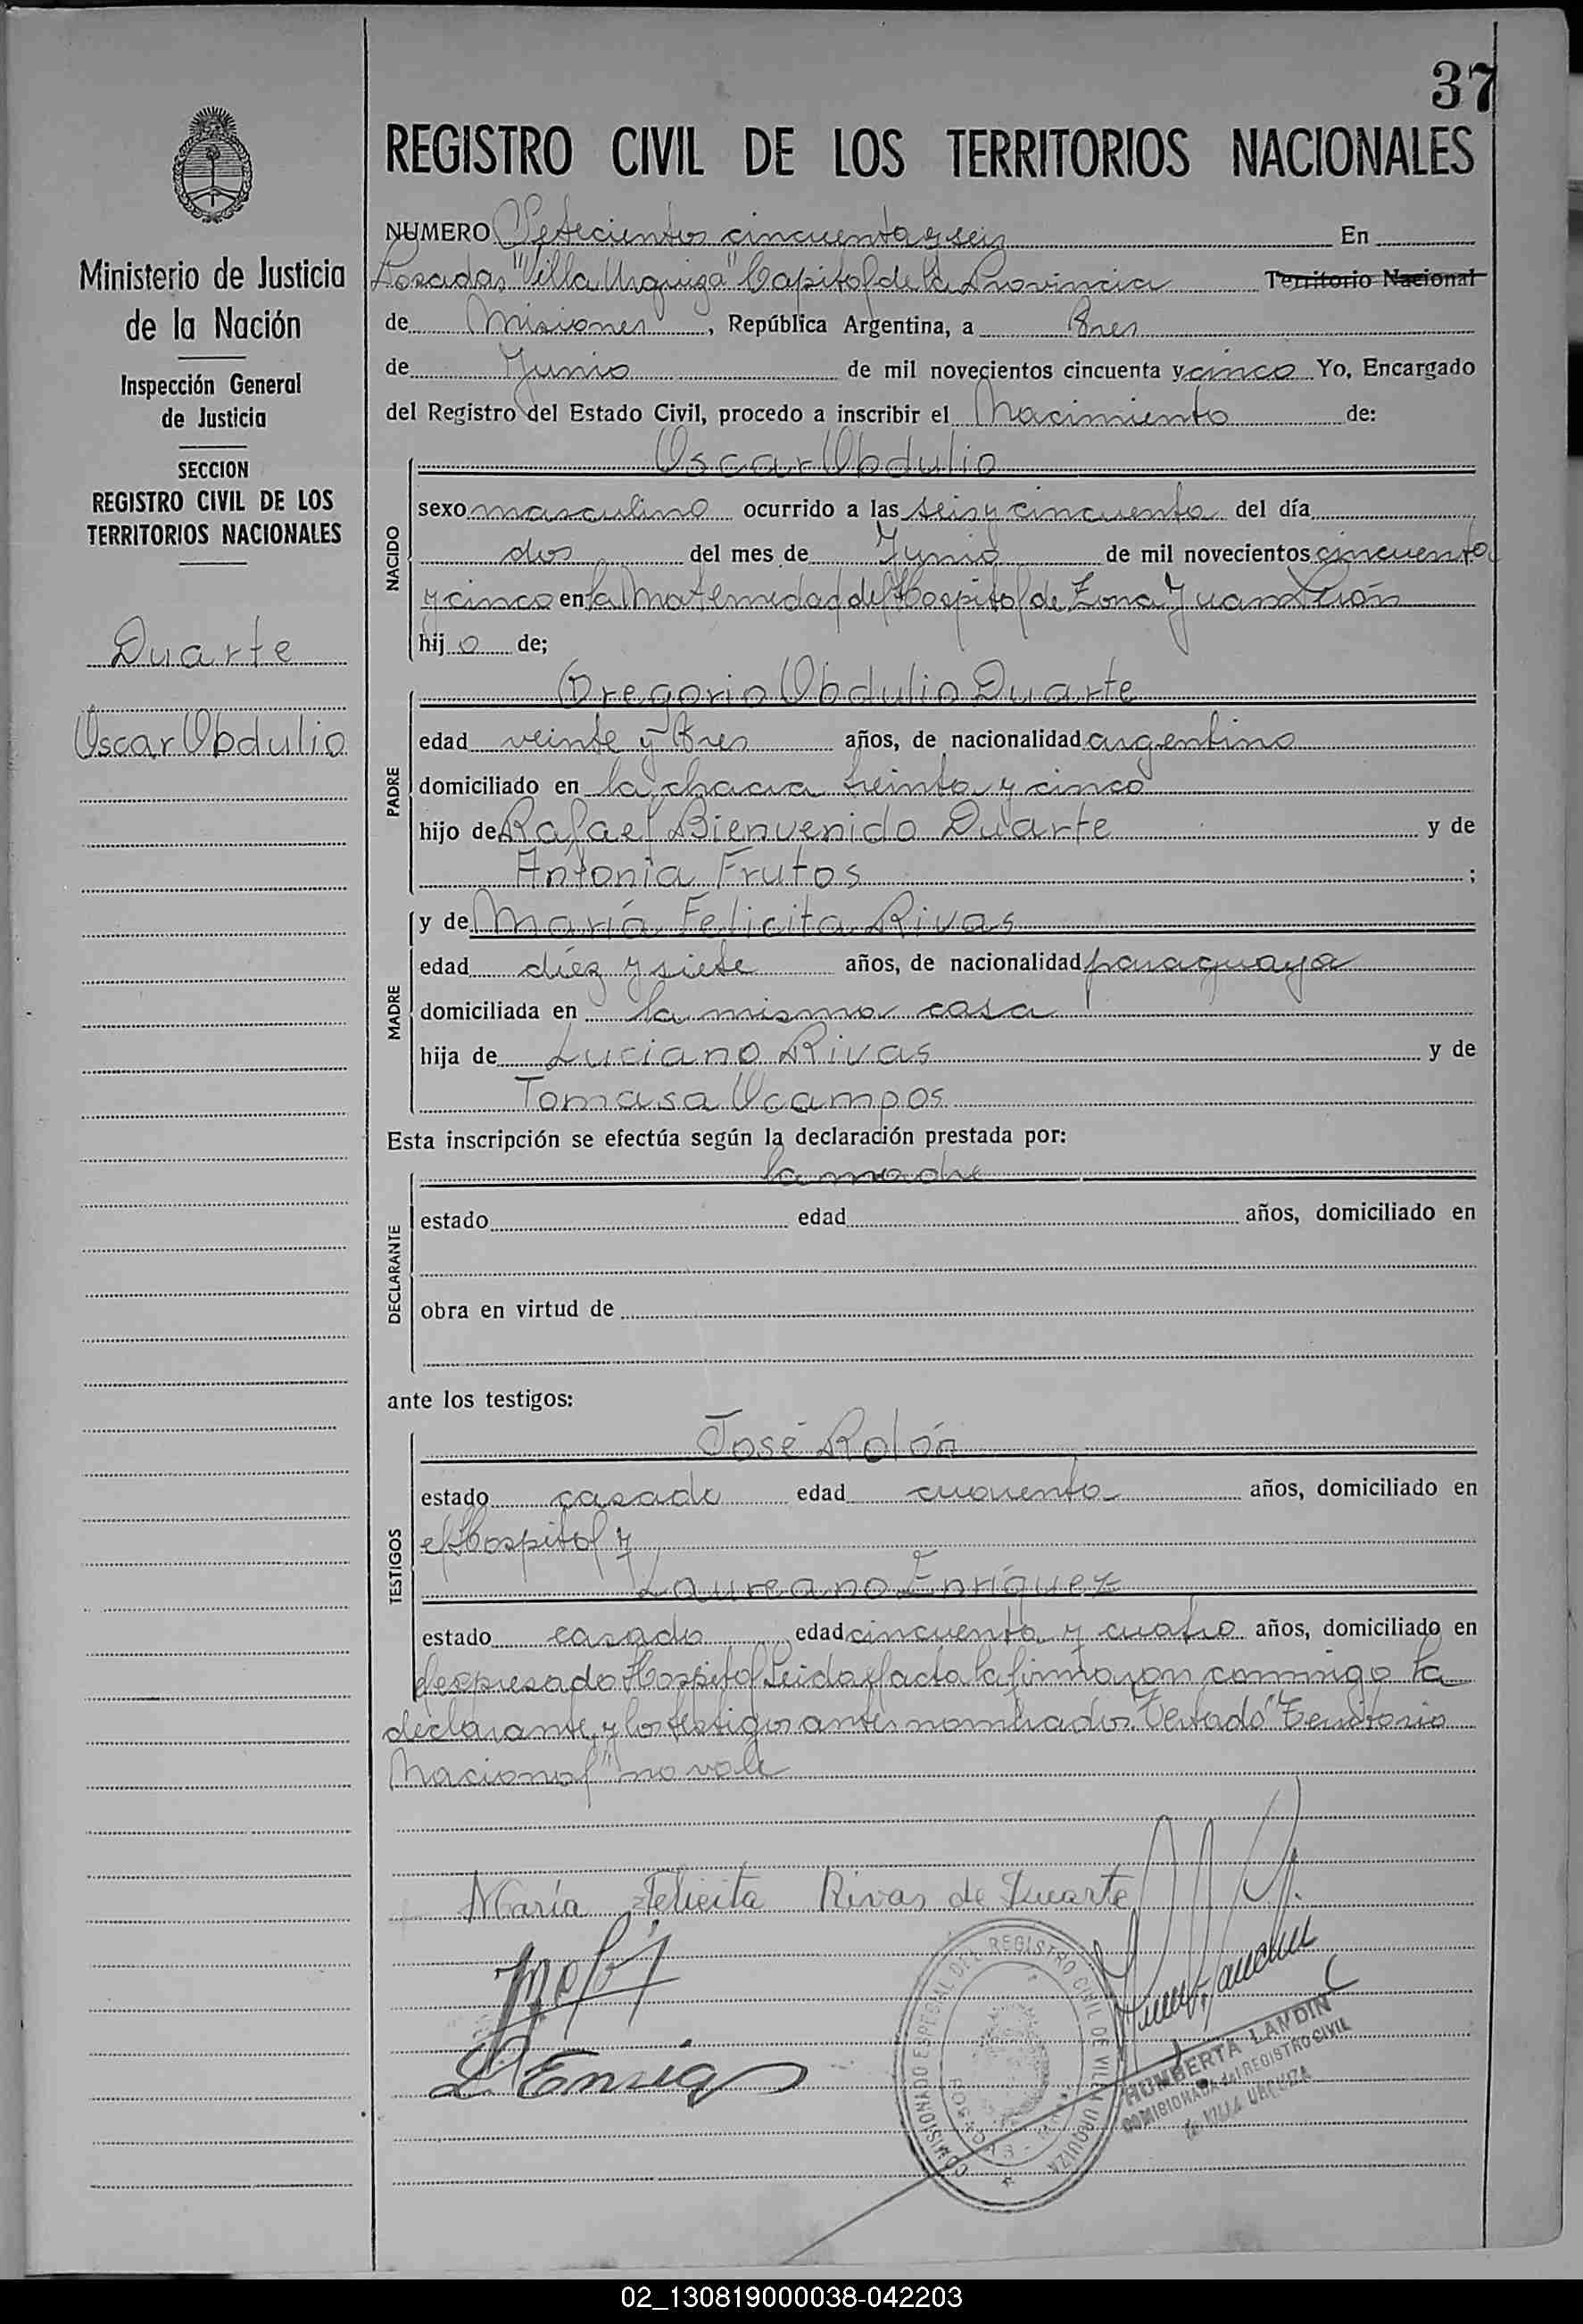 37
REGISTRO CIVIL DE LOS TERRITORIOS NACIONALES
Ministerio de Justicia
de la Nación
Inspección General
de Justicia
SECCION
REGISTRO CIVIL DE LOS
TERRITORIOS NACIONALES
Duarte
Oscar Obdulio
NUMERO Setecientos cincuenta y seis En
Posadas "Villa Urquiza" Capital de la Provincia Territorio Nacional
de Misiones, República Argentina, a tres
de Junio de mil novecientos cincuenta y cinco Yo, Encargado
del Registro del Estado Civil, procedo a inscribir el Nacimiento de:
Oscar Obdulio
NACIDO
sexo masculino ocurrido a las seis y cincuenta del día
dos del mes de Junio de mil novecientos cincuenta
y cinco en la Maternidad del Hospital de Zona Juan Perón
hijo de;
Gregorio Obdulio Duarte
PADRE
edad veinte y tres años, de nacionalidad argentino
domiciliado en la chacra treinta y cinco
hijo de Rafael Bienvenido Duarte y de
Antonia Frutos ;
MADRE
y de María Felicita Rivas
edad diez y siete años, de nacionalidad paraguaya
domiciliada en la misma casa
hija de Luciano Rivas y de
Tomasa Ocampos
Esta inscripción se efectúa según la declaración prestada por:
la madre
DECLARANTE
estado edad años, domiciliado en
obra en virtud de
ante los testigos:
José Rolón
TESTIGOS
estado casado edad cuarenta años, domiciliado en
el Hospital y
Laureano Enríquez
estado casado edad cincuenta y cuatro años, domiciliado en
el expresado Hospital Leida el acta la firmaron conmigo la
declarante y los testigos antes nombrados. Testado "Territorio
Nacional" no vale
María Felicita Rivas de Duarte
COMISIONADO ESPECIAL DEL REGISTRO CIVIL DE VILLA URQUIZA
HUMBERTA LANDIN
COMISIONADA del REGISTRO CIVIL
de VILLA URQUIZA
02_130819000038-042203